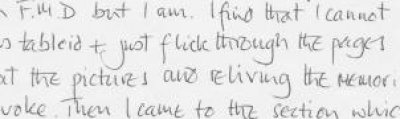 F.M.D but I am. I find that I cannot
tableid + just flick through the pages
at the pictures and reliving the memori
voke. Then I came to the section whic